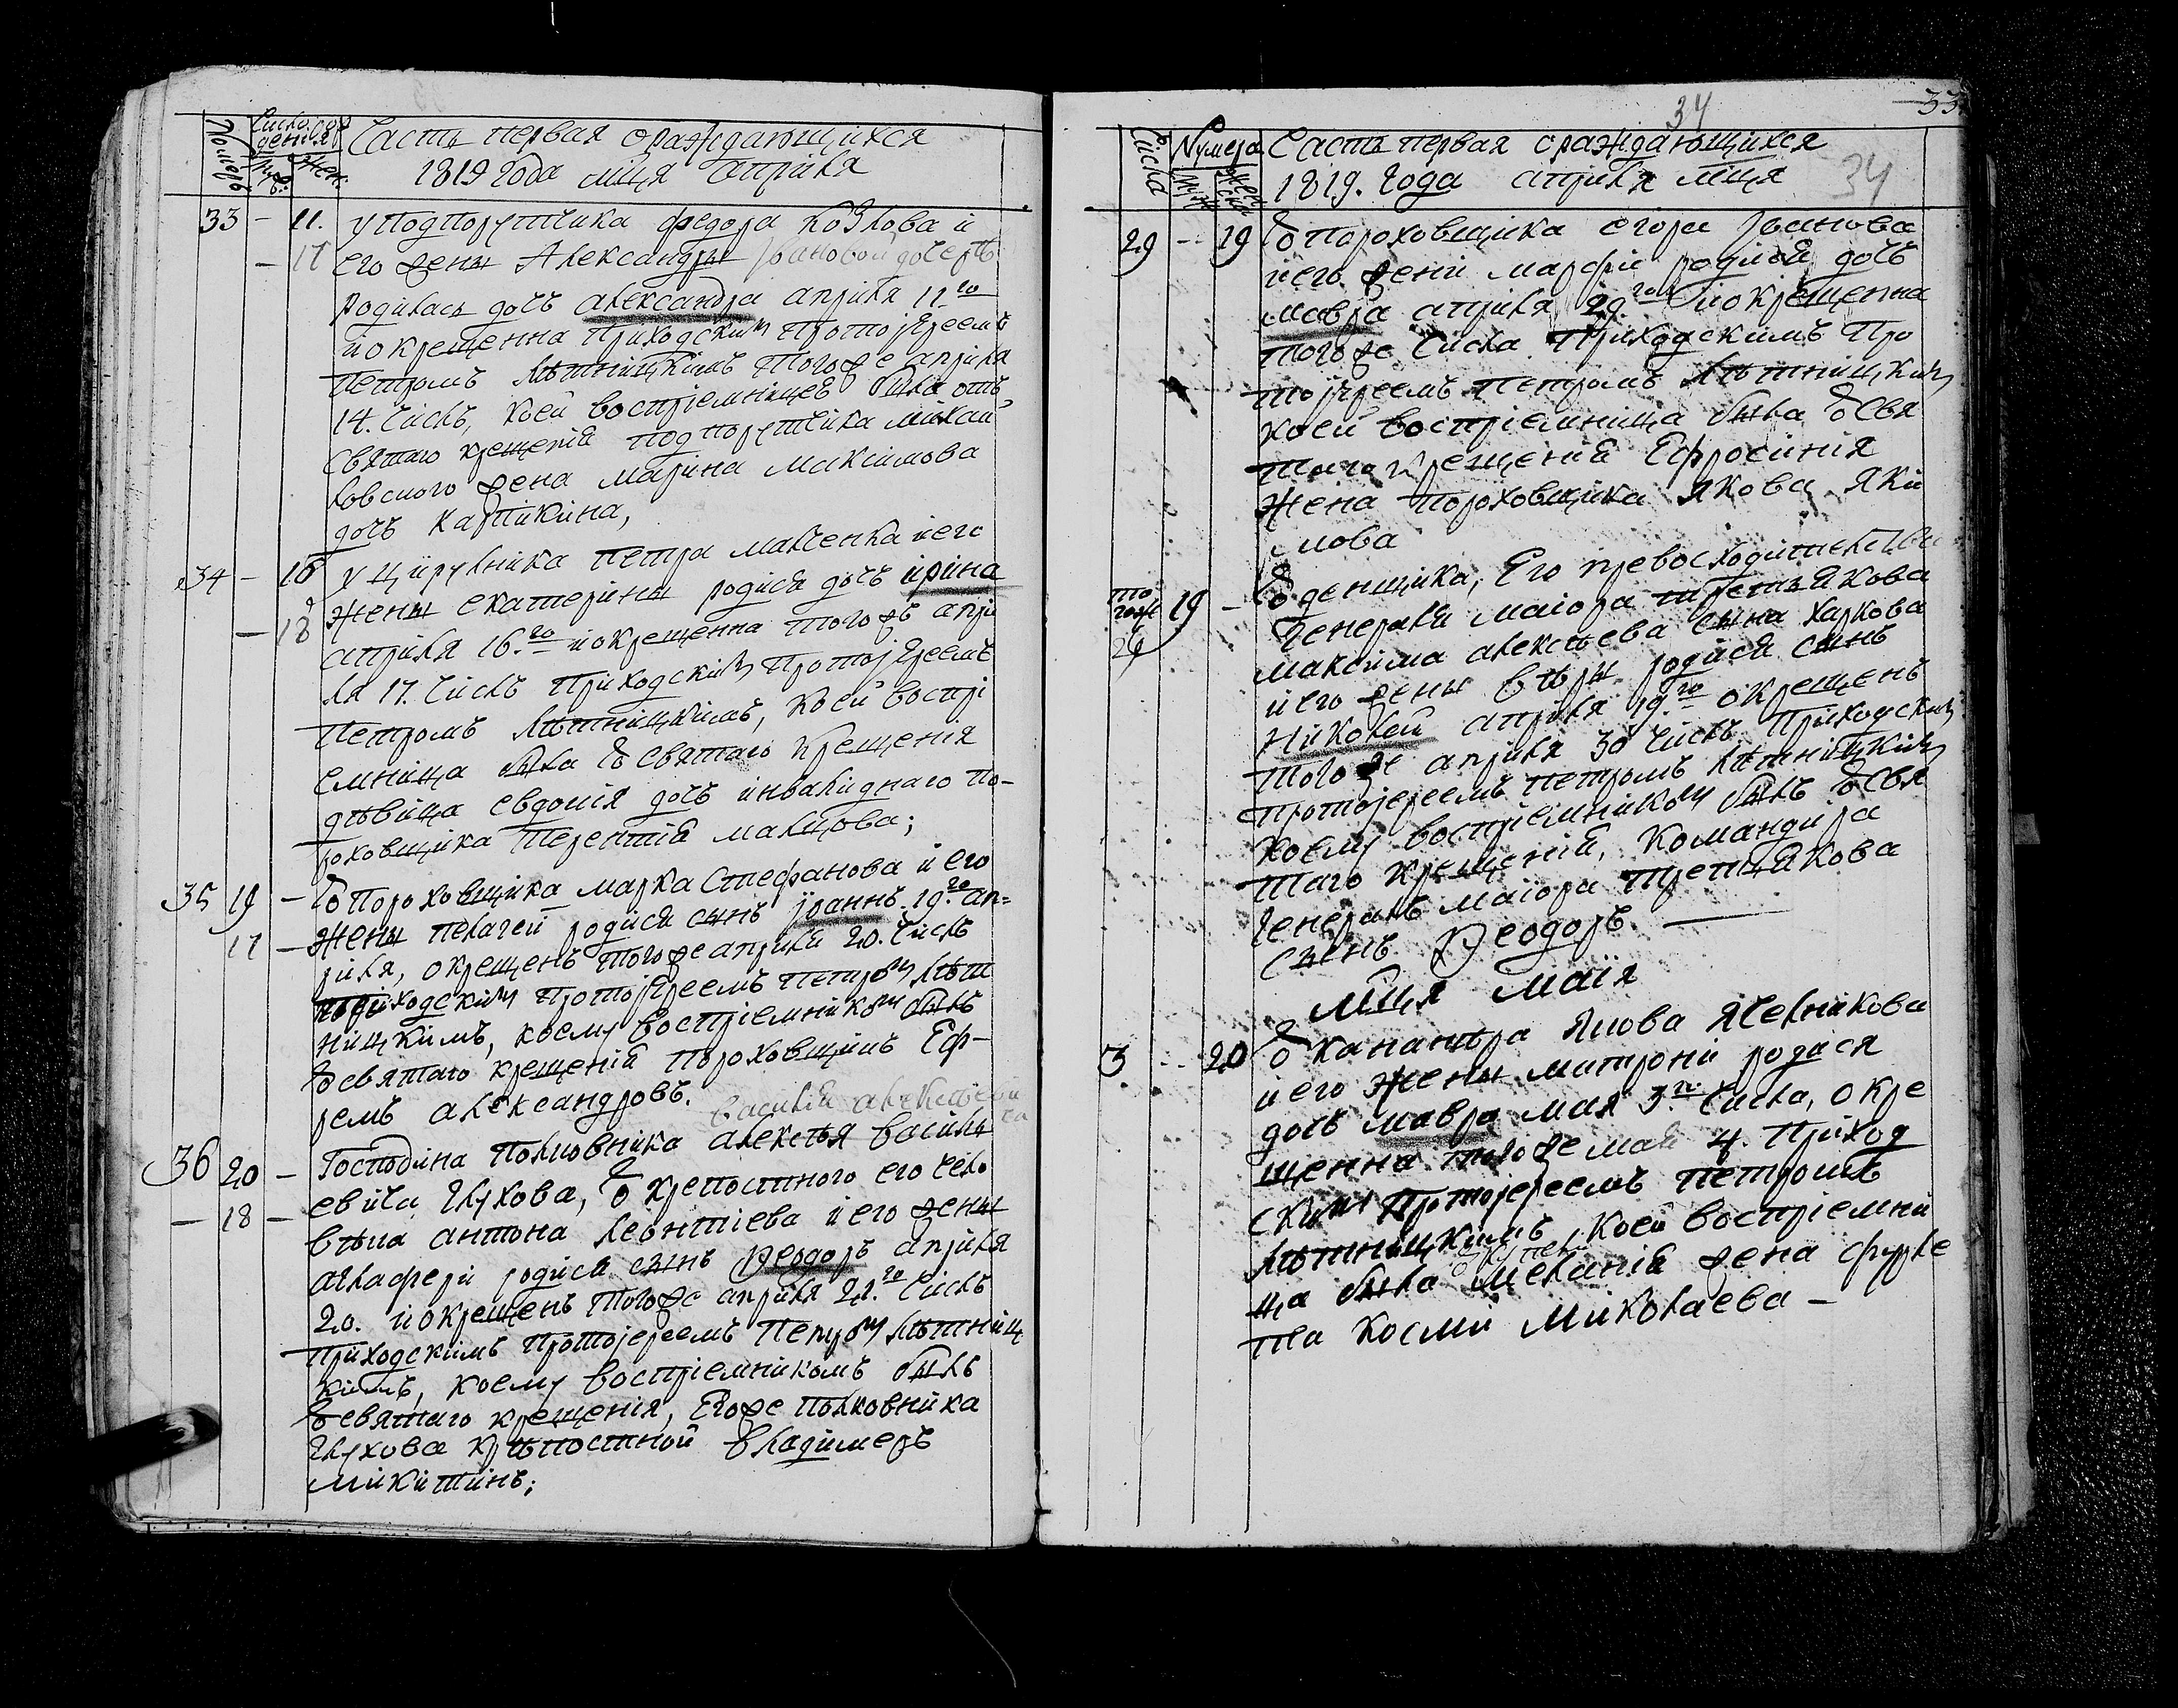 Номеръ
Число рож
денія
Муж:
Жен:
Часть первая ораждающихся
1819 Года мця апріля
33 - 11. у подпорутчика федора козлова и
- 17 его жены Александры Івановой дочерѣ
родилась дочъ александра апріля 11го
и окрещенна приходским протоіереемъ
петромъ Лѣтницкимъ того же апріля
14. числъ, коей воспріемницей была отъ
святаго крещенія подпорутчика михай
ловского жена марина максимова
дочъ карпикина,
34 - 16 у цирулника петра макченка и его
- 18 жены екатерины родися дочъ ирина
апріля 16.го и окрещенна того жъ апрі
ля 17. числъ приходским протоіереемъ
петромъ лѣтницкимъ, коей воспрі
емница была ѿ святаго крещенія
дѣвица евдокія дочъ инвалиднаго по-
роховщика терентія малцова;
35 19 - ѿ пороховщика марка Стефанова и его
17 - жены пелагеи родися сынъ іоаннъ. 19го ап=
ріля, окрещенъ того же апріля 20. числъ
приходским протоіереемъ петром лѣт
ницкимъ, коему воспріемником былъ
ѿ святаго крещенія пороховщикъ Еф-
ремъ александровъ.
василія алексѣеви
ча
36 20 - Господина полковника алексѣя василь
евича глухова, ѿ крепостного его чело
- 18 - вѣка антона леонтіева и его жены
агафери родися сынъ Ѳеодоръ апріля
20. и окрещенъ того же апріля 21.го числъ
приходскимъ протоіереемъ петром лѣтниц
кимъ, коему воспріемникомъ былъ
ѿ святаго крещенія, Его же полковника
глухова крѣпостной владимеръ
микитинъ;
34
33
Числа
Нумера
муж
женска
Часть первая ораждающихся
1819. года апріля мця
34
29 - 19 ѿ пороховщика егора Іванова
и его жени марфи родися дочъ
мавра апріля 29.го и окрещенна
того же числа приходскимъ про
тоіереемъ петромъ лѣтницким
коей воспріемница была ѿ свя
таго крещенія Ефросинія
жена пороховщика якова яки
мова
того ж 29 19 - ѿ денщика, Его превосходителства
Генерала маіора третьякова
максима алексѣева сына харкова
и его жены вѣры родися сынъ
николай апріля 19.го окрещенъ
того же апріля 30 числъ приходским
протоіереемъ петромъ лѣтницким
коему воспріемником былъ ѿ свя
таго крещенія, командира
генералъ маіора третьякова
сынъ Ѳеодоръ. —
мця маія
3 - 20 ѿ кананѣра якова ячелникова
и его жены митроніи родися
дочъ мавра мая 3.го числа, окре
щенна того же мая 4. приход
ским протоіереемъ петромъ
лѣтницкимъ, коей воспріемни
ца была меланія жена фурле
та косми миколаева -